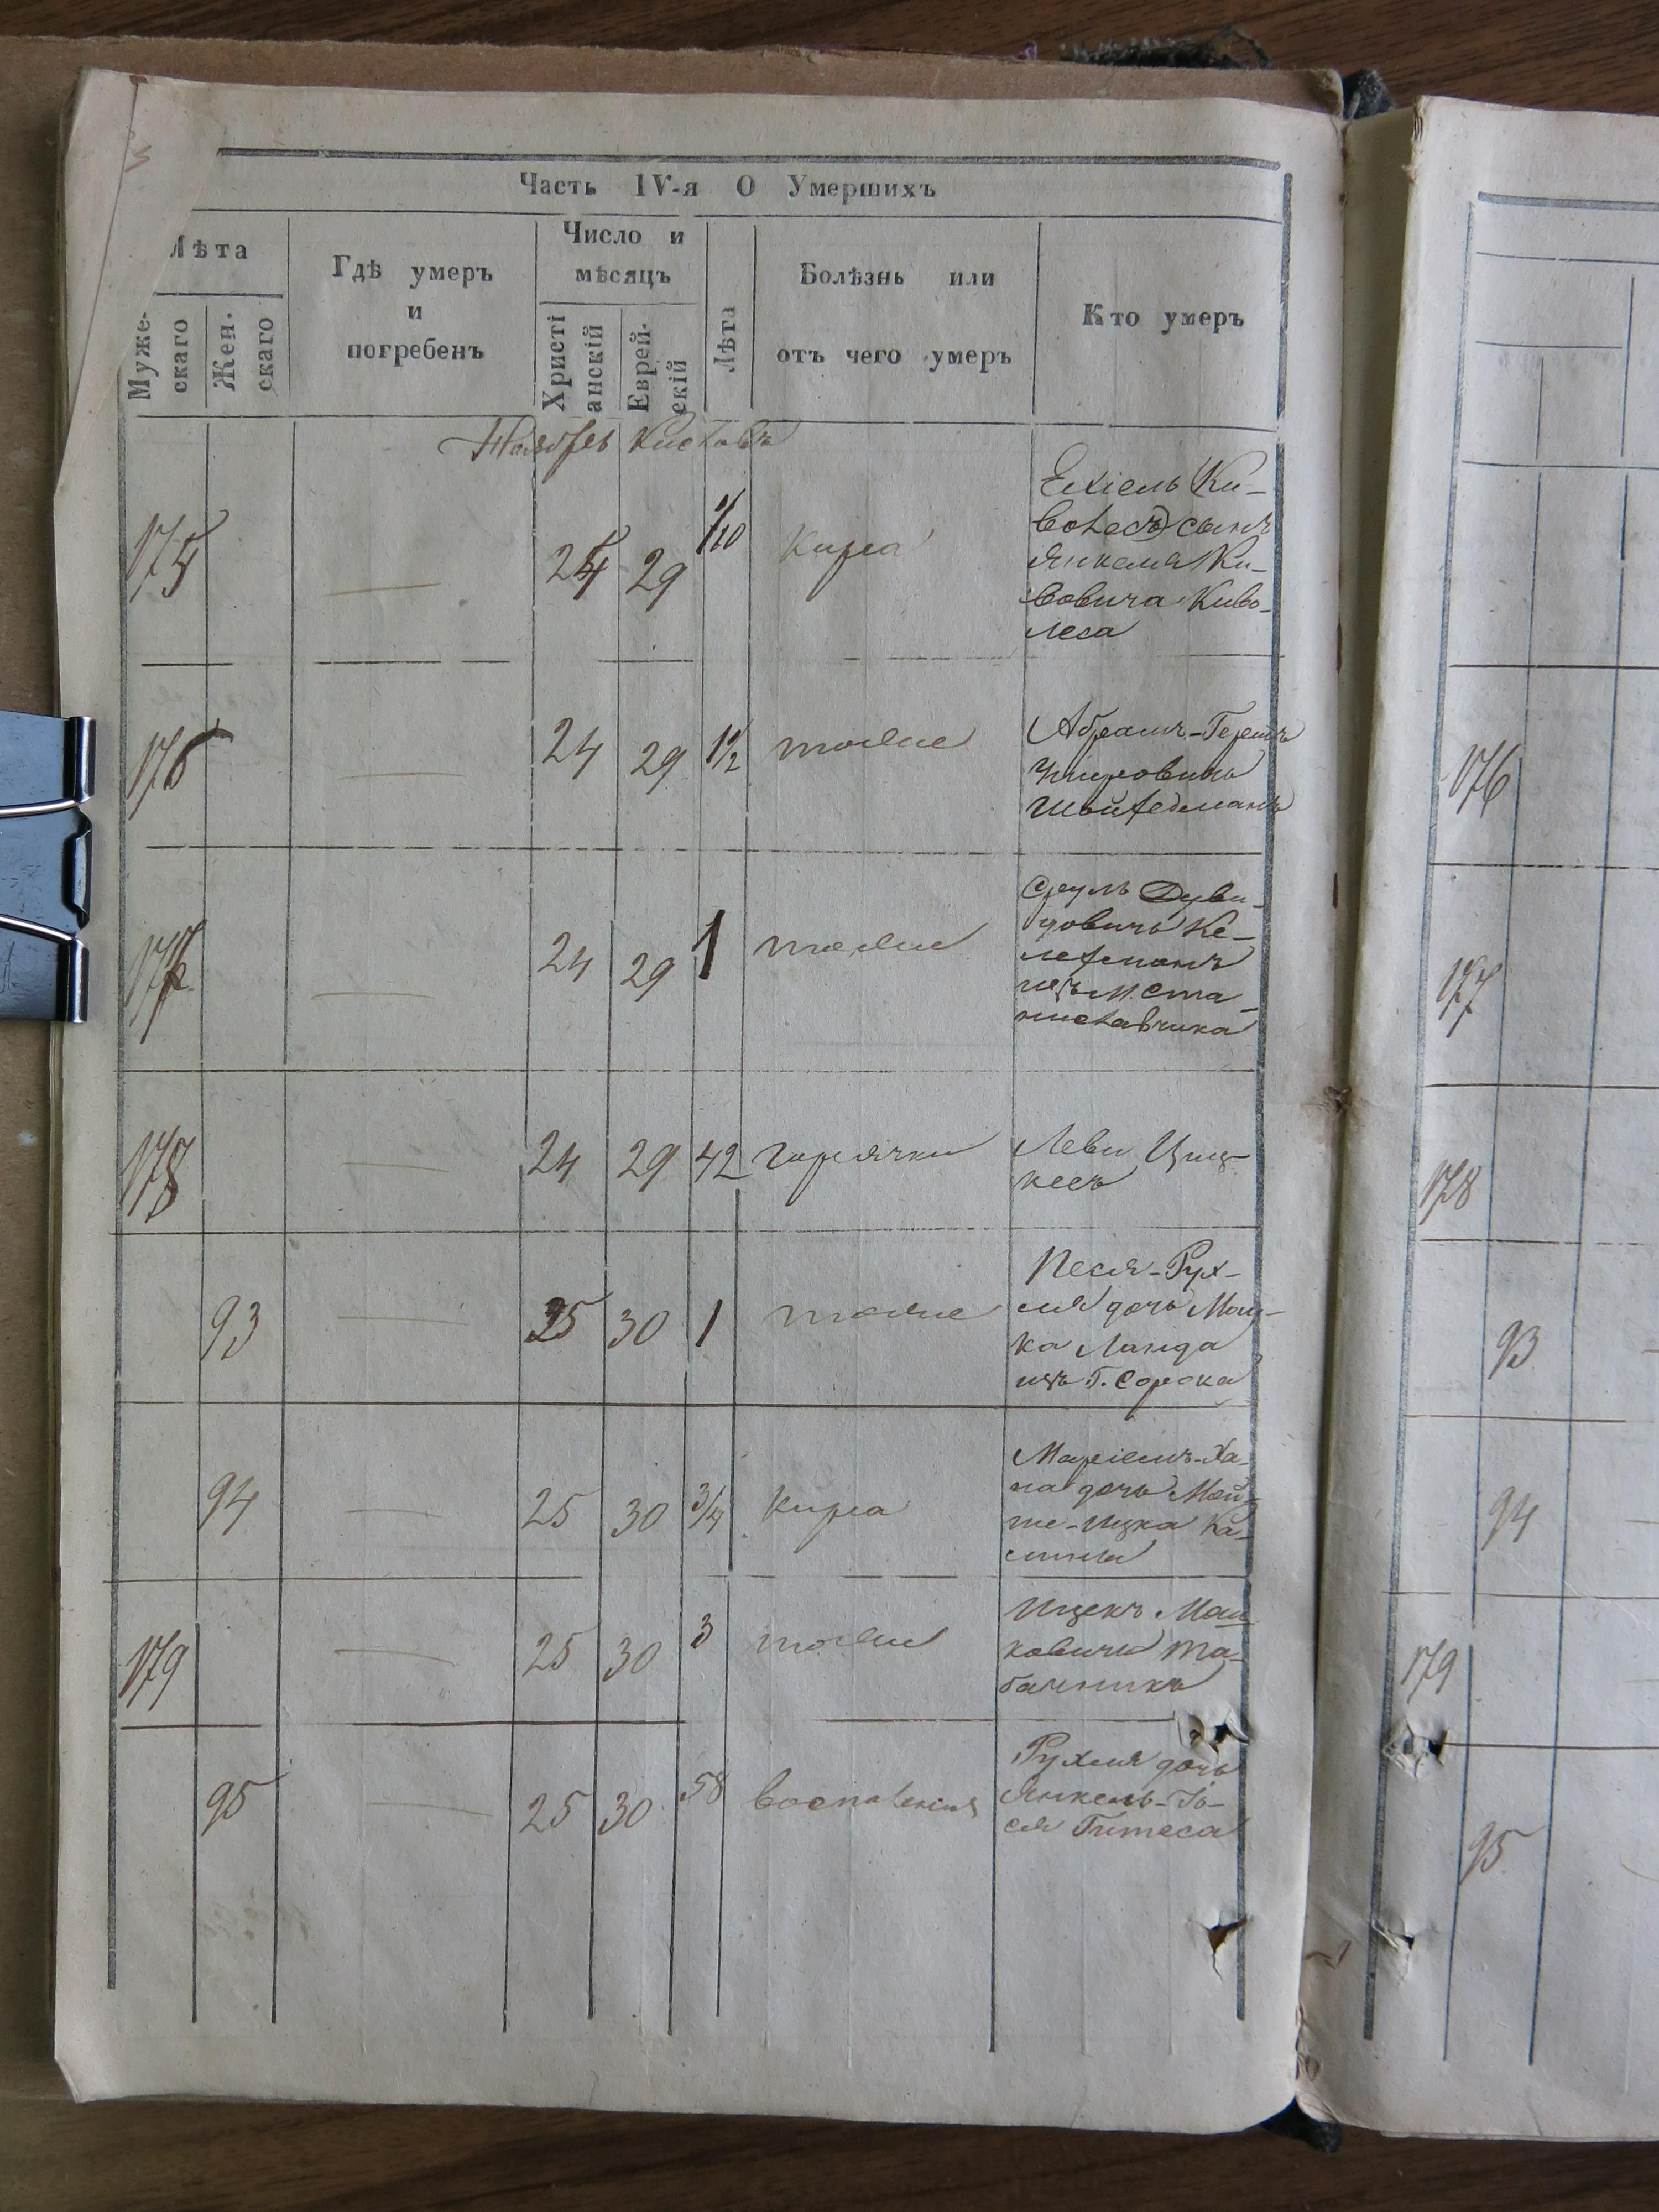 Часть IV-я О Умершихъ
Лѣта
Муже-
скаго
Жен.
скаго
Гдѣ умеръ
и
погребенъ
Число и
мѣсяцъ
Христі
анскій
Еврей-
скій
Лѣта
Болѣзнь или
отъ чего умеръ
Кто умеръ
Ноябрь Кислевъ
175 24 29 1/10 кирса
Ехіель Ки-
волесъ) сынъ
Янкеля Ки-
вовича Киво-
леса
176 24 29 1½ тоже
Абрамъ-Гершъ
Шойфедманъ
177 24 29 1 тоже
Сруль Дуви-
довичъ Ке-
лерманъ
изъ м. Ста-
ниславчика
178 24 29 42 горячки
Леви Циц-
кесъ
93 25 30 1 тоже
Песя-Рух-
ля дочь Мош-
ка Ланда
изъ Г. Сорока
94 25 30 3/4 кирса
Маріемъ-Ха-
на дочь Мой-
ше-Ицка Ка-
179 25 30 3 тоже
Ицекъ Мош-
ковичъ Та-
бачникъ
95 25 30 58 воспаленія
Рухля дочь
Янкель-Іо-
ся Гитеса
176
177
178
93
94
179
95